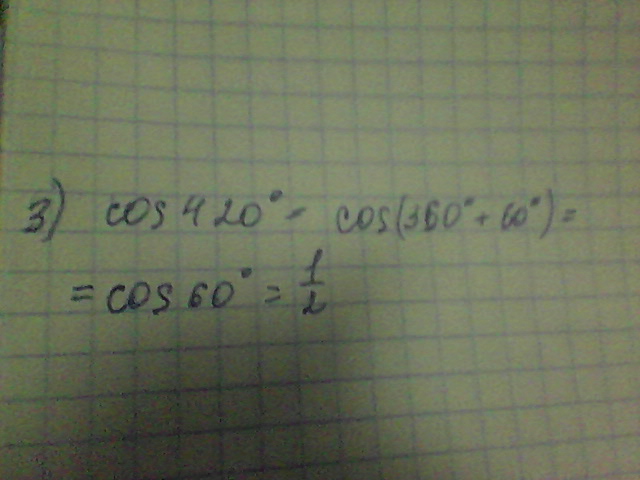 3) cos 420° = cos(360° + 60°) =
= cos 60° = 1/2